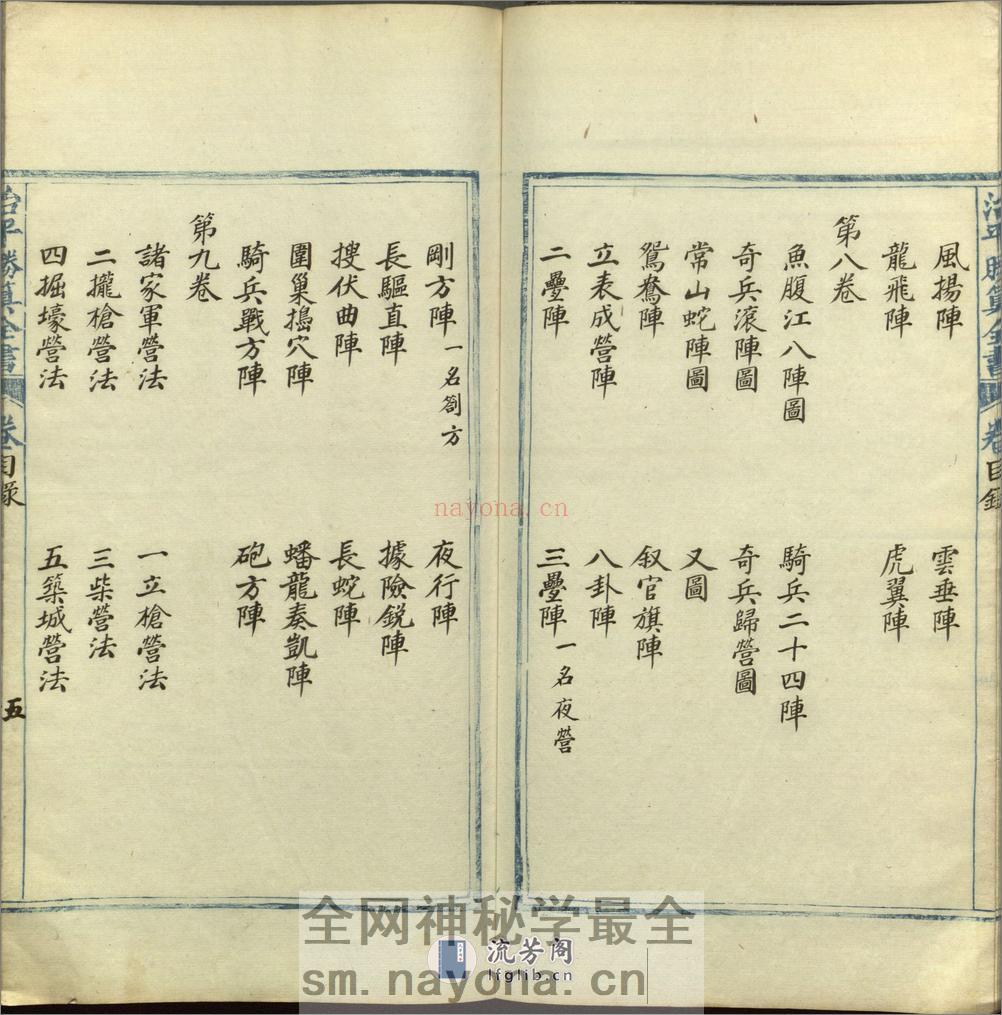 風揚陣 雲垂陣
龍飛陣 虎翼陣
第八卷
魚腹江八陣圖 騎兵二十四陣
奇兵滾陣圖 奇兵歸營圖
常山蛇陣圖 又圖
鴛鴦陣 叙官旗陣
立表成營陣 八卦陣
二疊陣 三疊陣 一名夜營
治平勝算全書 卷 目錄
剛方陣 一名劄方 夜行陣
長驅直陣 據險銳陣
搜伏曲陣 長蛇陣
圍巢搗穴陣 蟠龍奏凱陣
騎兵戰方陣 砲方陣
第九卷
諸家軍營法 一立槍營法
二攏槍營法 三柴營法
四掘壕營法 五築城營法
治平勝算全書 卷 目錄 五
nayona.cn
全网神秘学最全
流芳阁
lfglib.cn
sm.nayona.cn